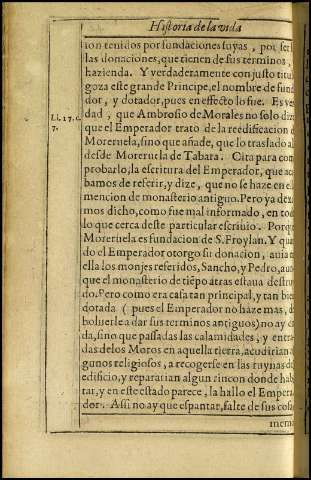 Historia de la vida
son tenidos por fundaciones suyas, por ser
las donaciones, que tienen de sus terminos,
hazienda. Y verdaderamente con justo titu
goza este grande Principe, el nombre de fund
dor, y dotador, pues en effecto lo fue. Es ver
Li. 17. c. dad, que Ambrosio de Morales no solo dize
7. que el Emperador trato de la reedificacion
Moreruela, sino que añade, que lo traslado al
desde Moreruela de Tabara. Cita para com
probarlo, la escritura del Emperador, que aca
bamos de referir, y dize, que no se haze en el
mencion de monasterio antiguo. Pero ya dexa
mos dicho, como fue mal informado, en tod
lo que cerca deste particular escribio. Porqu
Moreruela es fundacion de S. Froylan. Y qua
do el Emperador otorgo su donacion, auia
ella los monjes referidos, Sancho, y Pedro, aun
que el monasterio de tiẽpo atras estaua destru
do. Pero como era casa tan principal, y tan bie
dotada (pues el Emperador no haze mas, d
boluerle a dar sus terminos antiguos) no ay d
da, sino que passadas las calamidades, y entra
das delos Moros en aquella tierra, acudirian a
gunos religiosos, a recogerse en las ruynas d
edificio, y repararian algun rincon donde hab
tar, y en este estado parece, la hallo el Empera
dor. Assi no ay que espantar, falte de sus cosa
mema